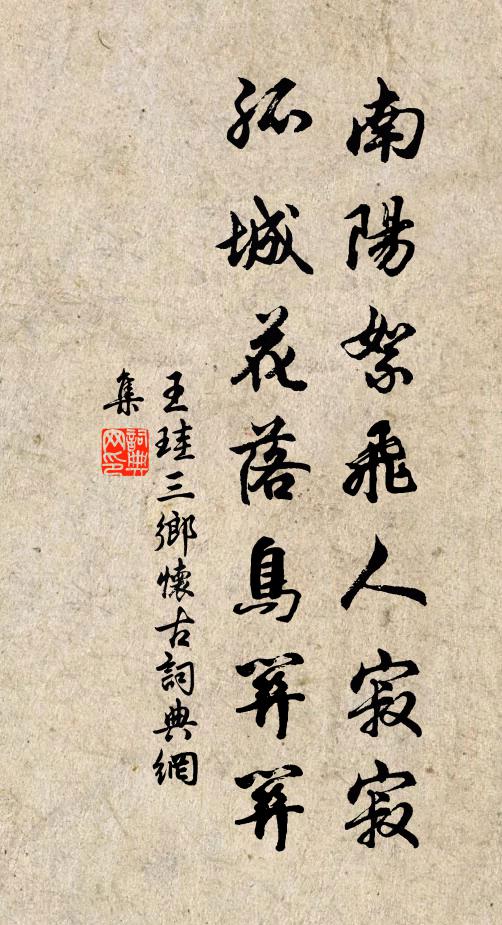 南陽絮飛人寂寂
孤城花落鳥關關
王珪三鄉懷古詞典網
集
詞典网印